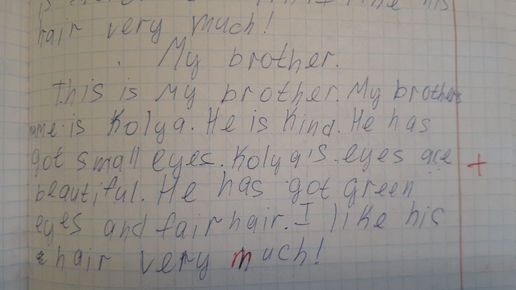 hair very much!
My brother.
This is my brother. My brother
name is Kolya. He is kind. He has
got small eyes. Kolya's eyes are
beautiful. He has got green
eyes and fair hair. I like his
hair very much!